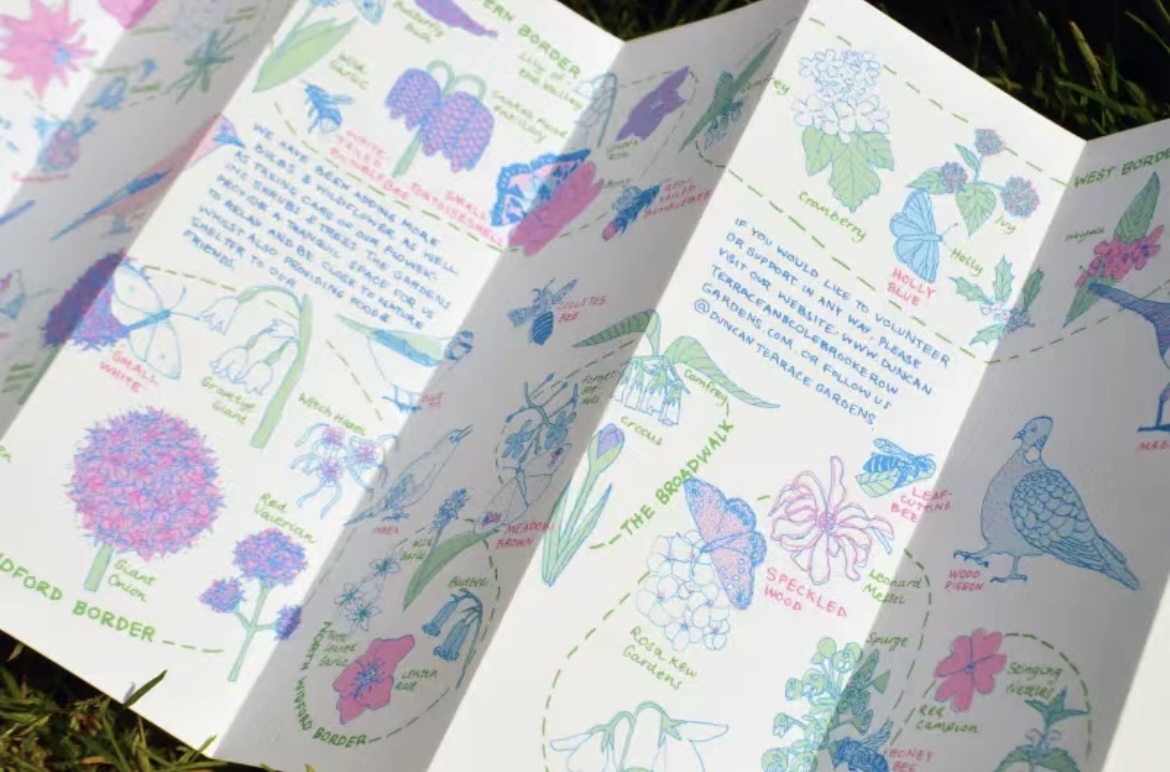 Wild
Garlic
ERN BORDER
Lily of
the valley
WHITE
TAILED
BUMBLEBEE
SMALL
TORTOISESHELL
RED
TAILED
BUMBLEBEE
WE HAVE BEEN ADDING MORE
BULBS & WILDFLOWERS AS WELL
AS TAKING CARE OF OUR FLOWERS,
SHRUBS & TREES. THE GARDENS
A TRANQUIL SPACE FOR US
TO RELAX AND BE CLOSE TO NATURE
WHILST ALSO PROVIDING FOOD &
SHELTER TO OUR
FRIENDS.
SMALL
WHITE
Gravetye
Giant
Witch Hazel
Giant
Onion
Red
Valerian
DFORD BORDER
COLLETES
BEE
Comfrey
Crocus
THE BROADWALK
MEADOW
BROWN
Bluebell
Lenten
Rose
NORTH WIDFORD BORDER
Cranberry
Ivy
Holly
HOLLY
BLUE
IF YOU WOULD LIKE TO VOLUNTEER
OR SUPPORT IN ANY WAY, PLEASE
VISIT OUR WEBSITE: WWW.DUNCAN
TERRACEANDCOLEBROOKEROW
GARDENS.COM. OR FOLLOW US
@DUNCAN TERRACE GARDENS.
LEAF-
CUTTING
BEE
SPECKLED
WOOD
Leonard
Messel
Rosa Kew
Gardens
Spurge
HONEY
BEE
WEST BORDE
WOOD
PIGEON
Red
Campion
Stinging
Nettles